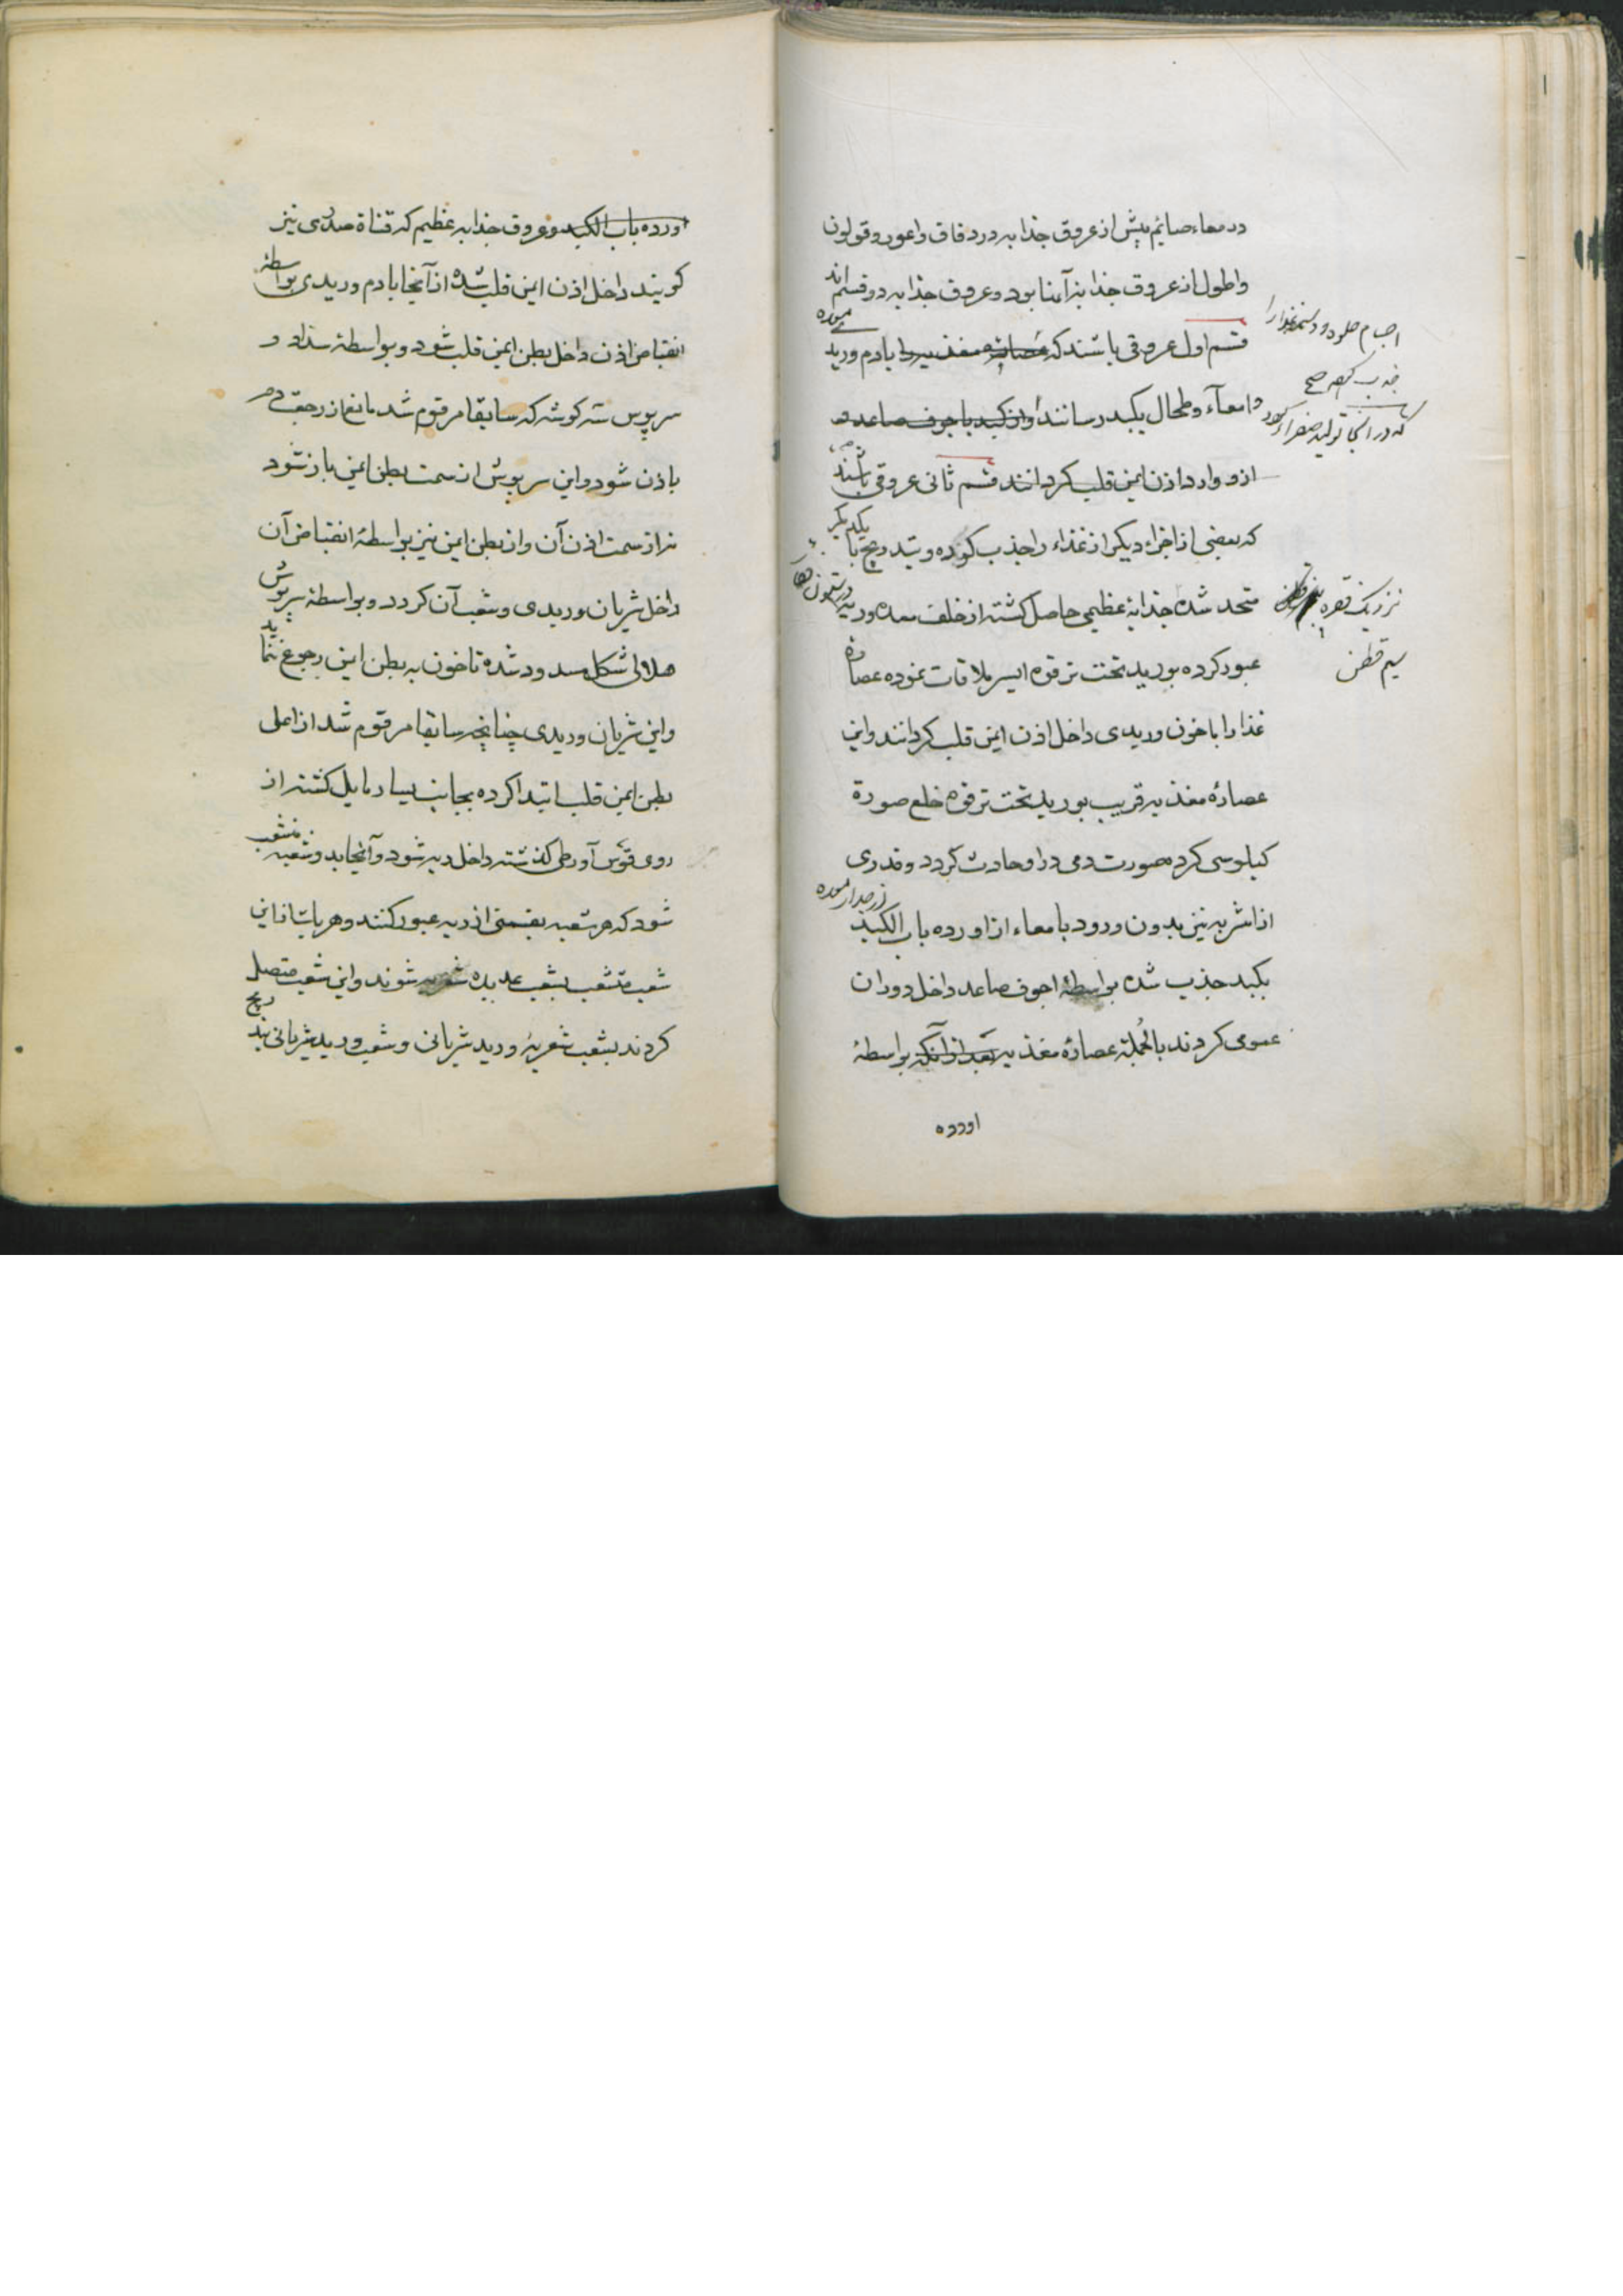 در معاء صایم بیش از عروق جذابه در دقاق و اعور و قولون
و اطول از عروق جذابهٔ آنها بود و عروق جذابه دو قسم‌اند
قسم اول عروقی باشند که عصارهٔ مغذیه را با دم ورید
معده
و امعآء و طحال بکبد رسانند و از کبد با جوف صاعد و
از او وارد اذن ایمن قلب گردانند قسم ثانی عروقی باشند
که بعضی از اجزاء دیگر از غذاء را جذب کرده و بتدریج با یکدیگر
متحد شده جذابهٔ عظیمی حاصل گشته از خلف معده و ریه
عبور کرده بورید تحت ترقوهٔ ایسر ملاقات نموده عصارهٔ
غذا را با خون وریدی داخل اذن ایمن قلب گردانند و این
عصارهٔ مغذیه قریب بورید تحت ترقوه خلع صورة
کیلوسی کرده صورت دمی در او حادث گردد و قدری
از اشربه نیز بدون ورود بامعاء از اورده باب الکبد
از جدار معده
بکبد جذب شده بواسطهٔ اجوف صاعد داخل دوران
عمومی گردند بالجملة عصارهٔ مغذیه بعد از آنکه بواسطهٔ
اورده
اجسام حلو و دسم غذا را
جذب کرده صح
که در آنجا تولید صفراء کرده
نزدیک فقره
سیم قطن
اورده باب الکبد و عروق جذابه عظیم که قناة صدری نیز
گویند داخل اذن ایمن قلب شده از آنجا با دم وریدی بواسطهٔ
انقباض اذن داخل بطن ایمن قلب شود و بواسطهٔ سداد و
سرپوس سه گوشه که سابقا مرقوم شد مانع از رجعت دم
باذن شود و این سرپوش از سمت بطن ایمن باز شود
نه از سمت اذن آن و از بطن ایمن نیز بواسطهٔ انقباض آن
داخل شریان وریدی و شعب آن گردد و بواسطهٔ سرپوش
هلالی شکل مسدود شده تا خون به بطن ایمن رجوع ننماید
و این شریان وریدی چنانچه سابقا مرقوم شد از اعلی
بطن ایمن قلب ابتدا کرده بجانب یسار مایل گشته از
روی قوس آورطی گذشته داخل ریه شود و آنجا بدو شعبه منشعب
شود که هر شعبه بقسمتی از ریه عبور کنند و هر یک ثانیا این
شعب منشعب بشعب عدیده شعریه شوند و این شعب متصل
گردند بشعب شعریهٔ ورید شریانی و شعب ورید شریانی بتدریج